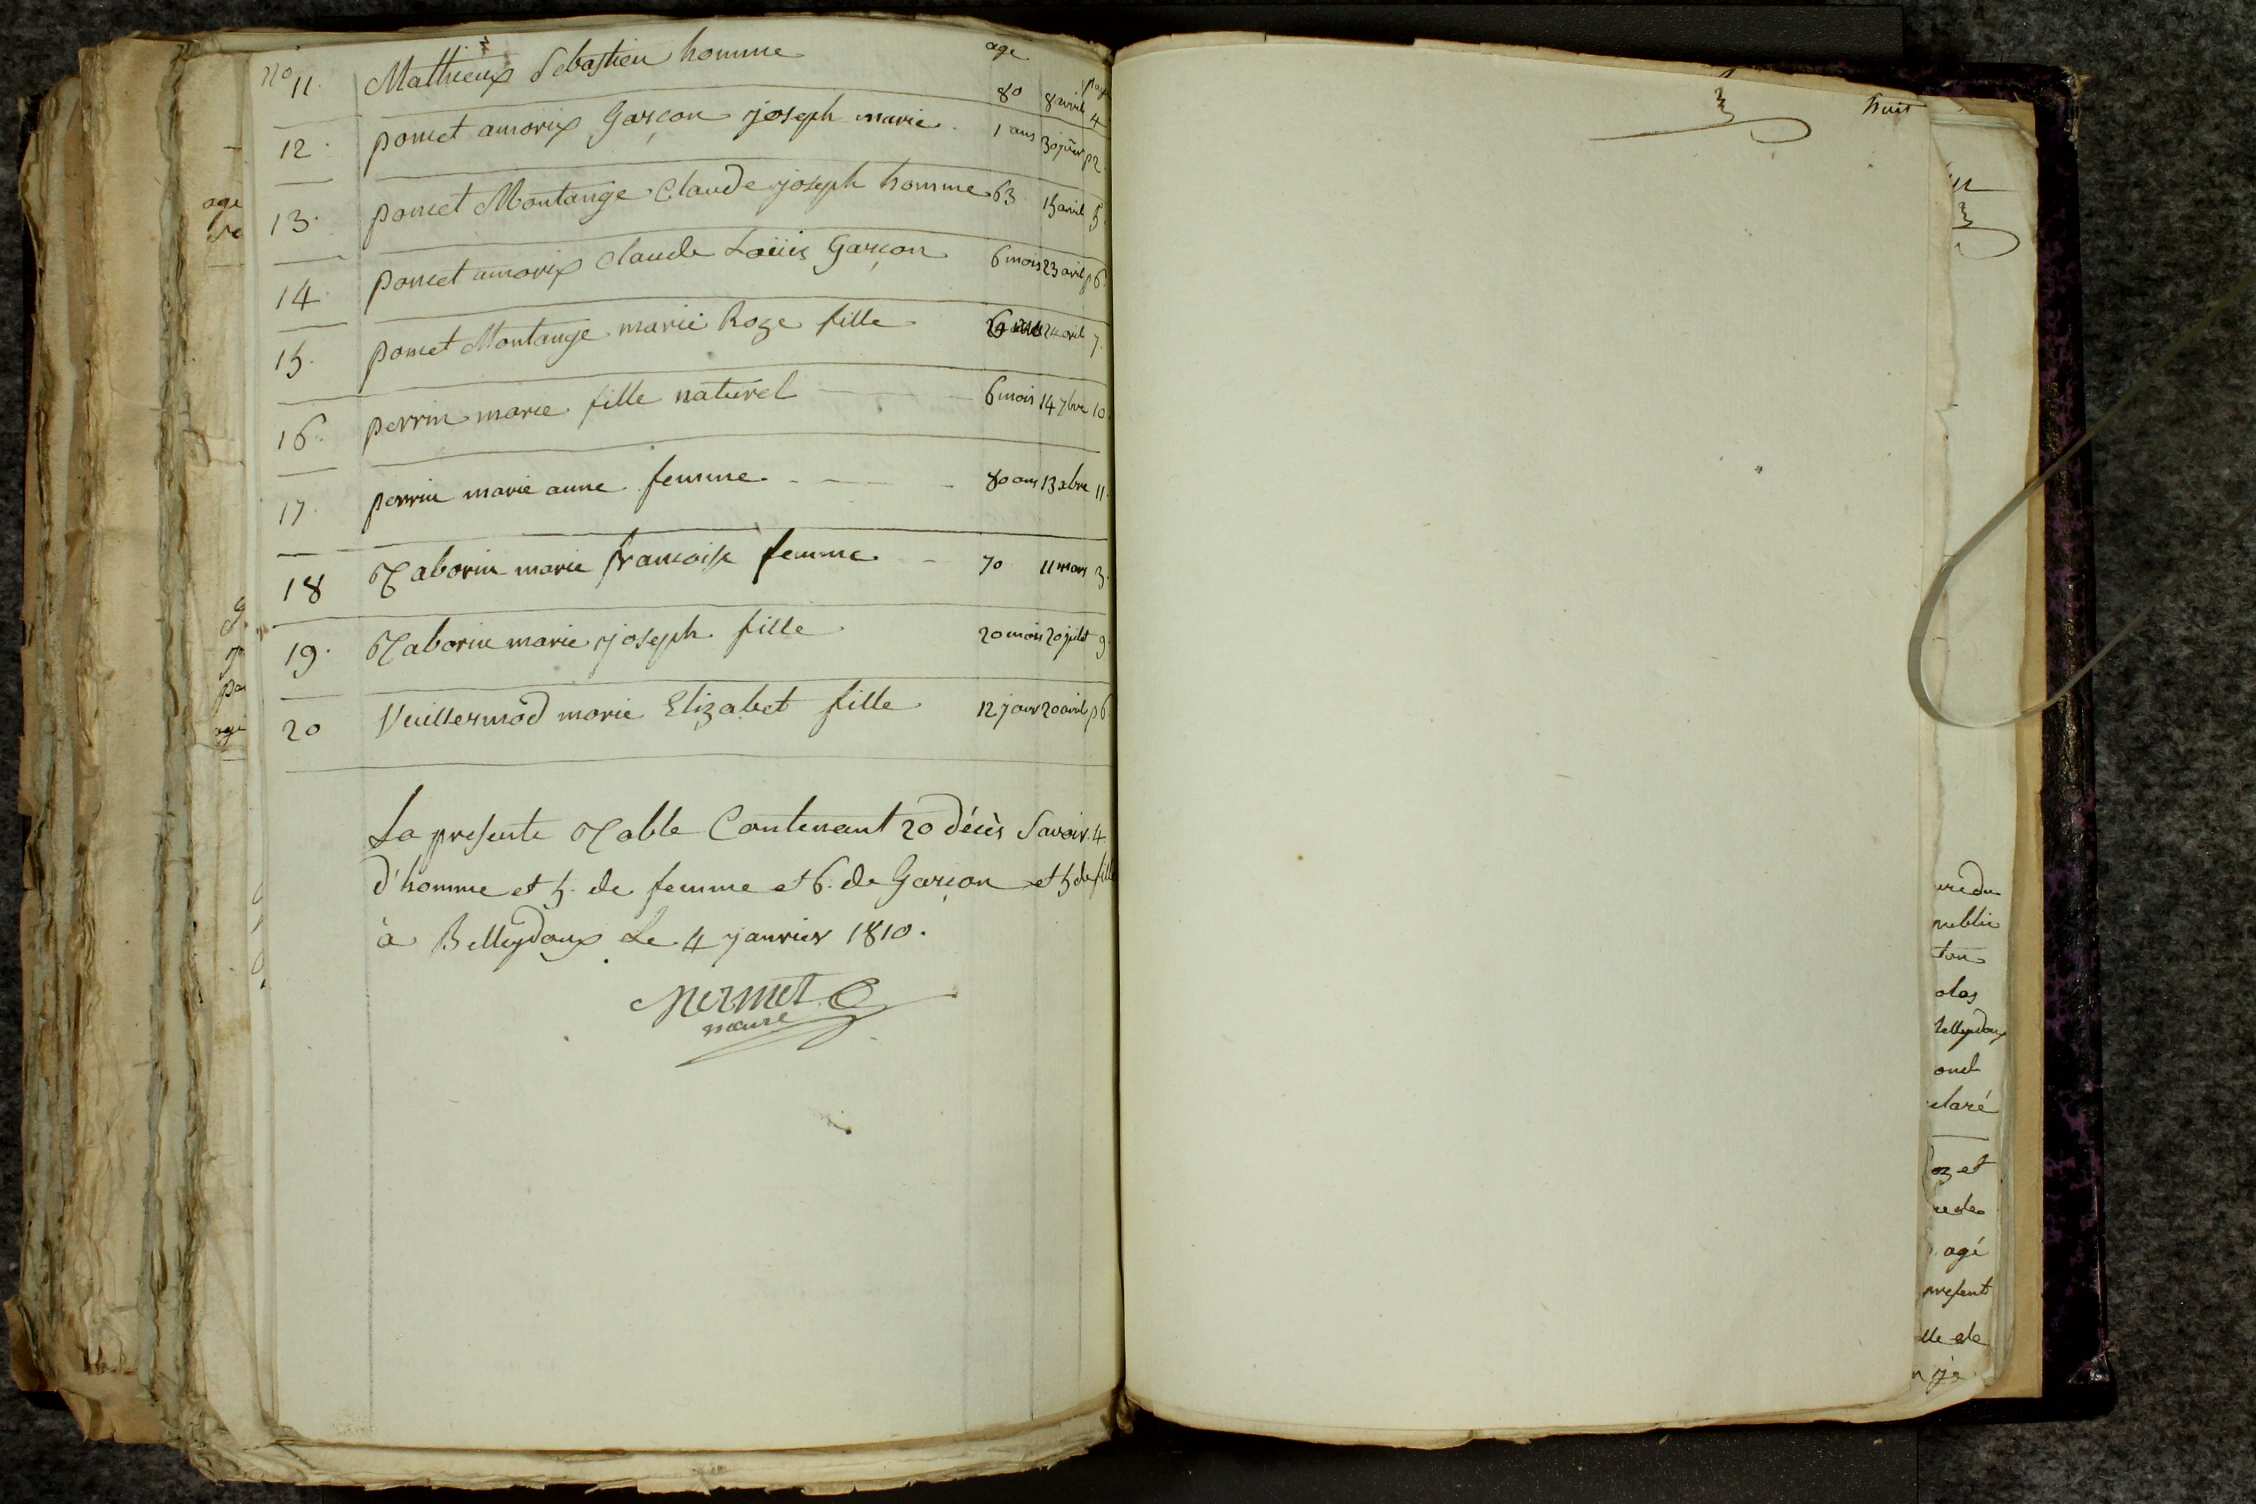 No age page
11. Mathieux Sebastien homme 80 8 avril 4
12. poncet amorix Garçon joseph marie 1 ans 30 p 2
13. poncet Montange Claude joseph homme 63 15 avril 5
14. poncet amorix claude Loüis Garçon 6 mois 23 avril p 6
15. poncet Montange marie Roze fille 24 avril 7
16. perrin marie fille naturel 6 mois 14 7bre 10
17. perrin marie anne femme 80 ans 13 xbre 11
18 Taborin marie francoise femme 70 11 mars 3
19. Taborin marie joseph fille 20 mois 20 juilet 9
20 Vuillermod marie Elizabet fille 12 jour 20 avril p 6
La presente Table Contenant 20 décès Savoir 4
d'homme et 5. de femme et 6. de Garçon et 5 de fille
à Belleydoux Le 4 janvier 1810.
Mermet
maire
huit